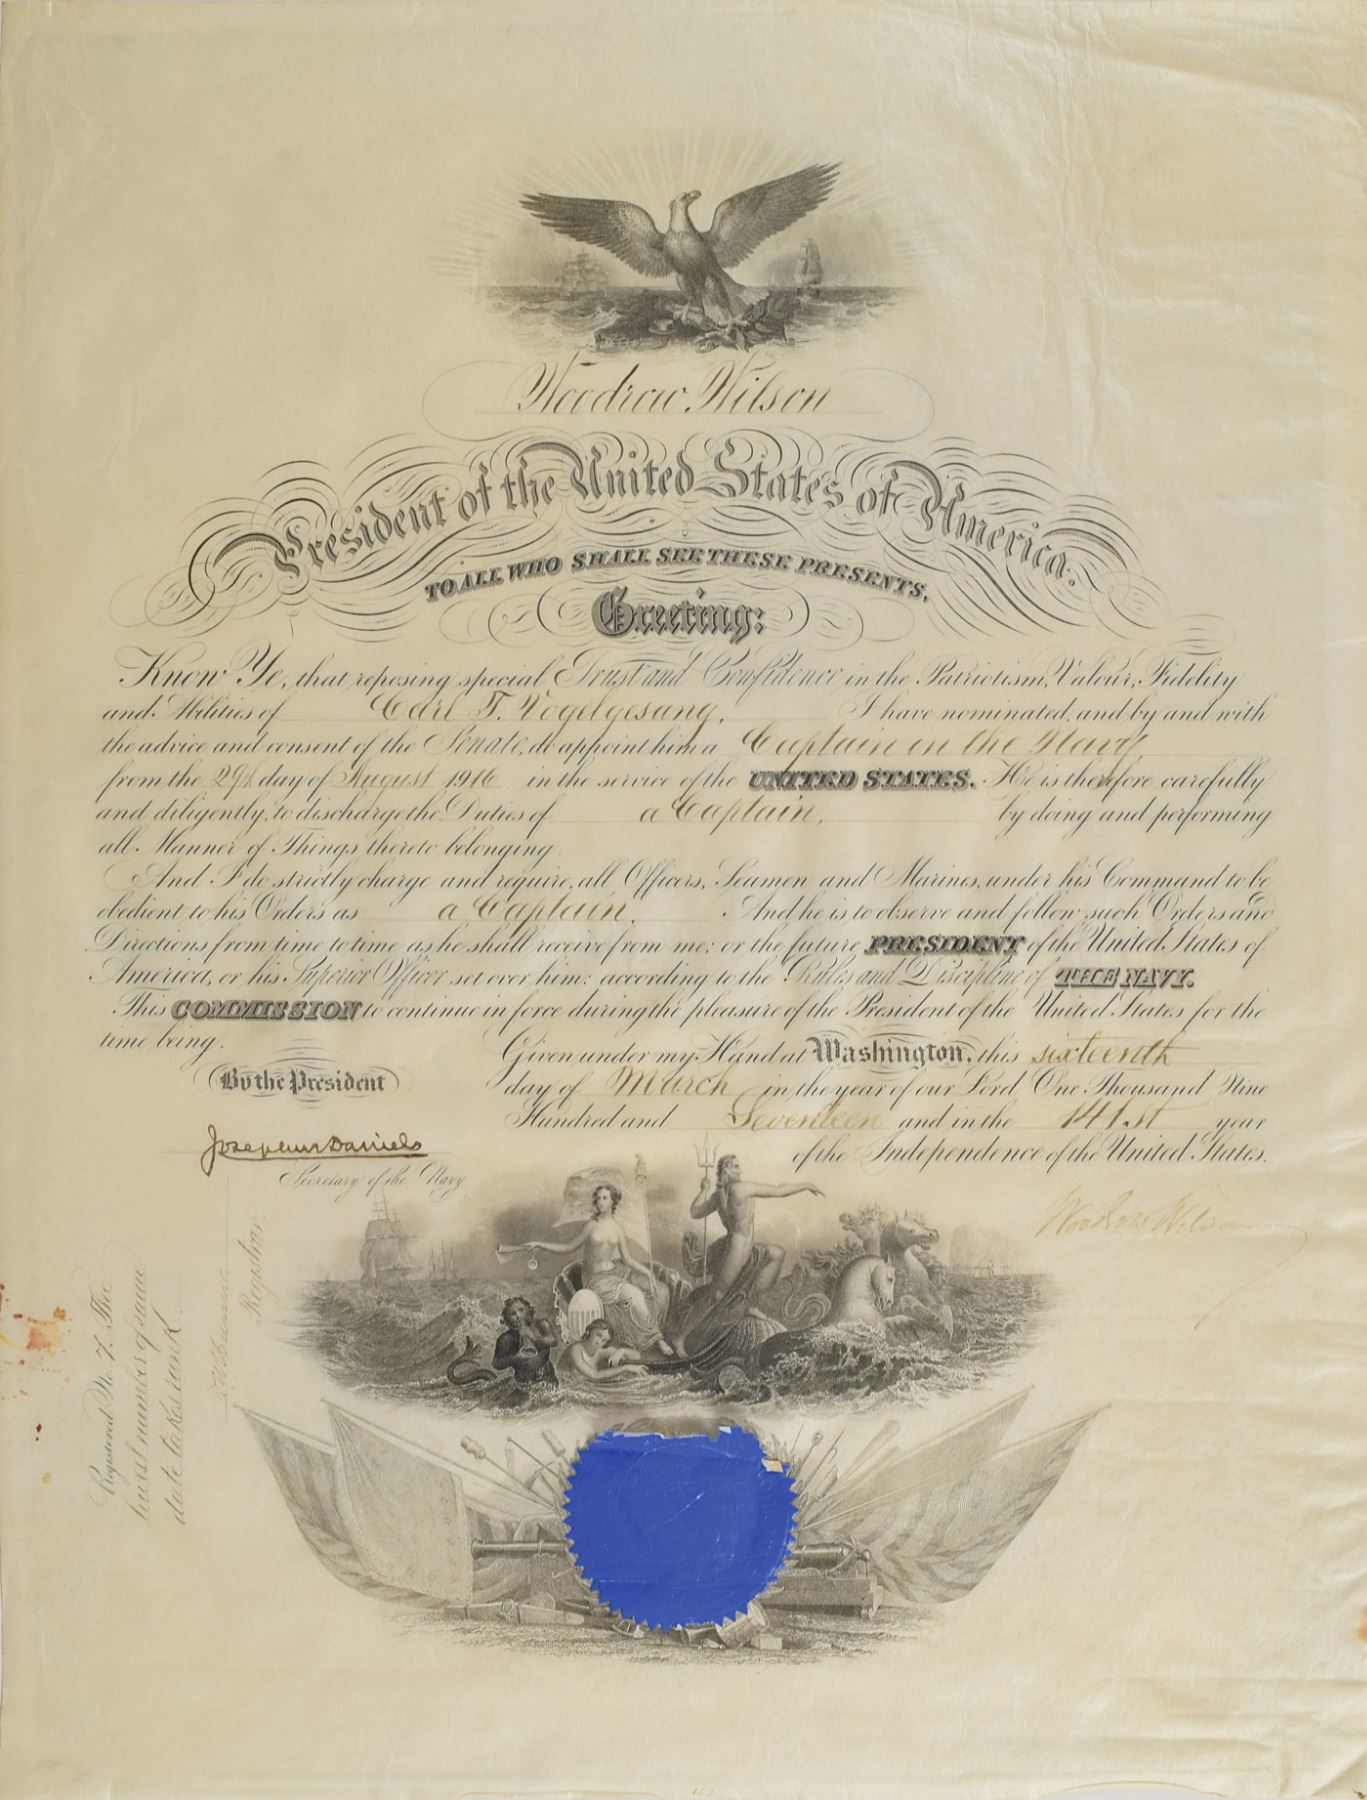 Woodrow Wilson
President of the United States of America.
TO ALL WHO SHALL SEE THESE PRESENTS,
Greeting:
Know Ye, that reposing special Trust and Confidence in the Patriotism, Valour, Fidelity
and Abilities of Carl T. Vogelgesang, I have nominated, and by and with
the advice and consent of the Senate, do appoint him a Captain in the Navy
from the 29th day of August 1916 in the service of the UNITED STATES. He is therefore carefully
and diligently, to discharge the Duties of a Captain, by doing and performing
all Manner of Things thereto belonging.
And I do strictly charge and require, all Officers, Seamen and Marines, under his Command to be
obedient to his Orders as a Captain. And he is to observe and follow such Orders and
Directions from time to time as he shall receive from me: or the future PRESIDENT of the United States of
America, or his Superior Officer set over him: according to the Rules and Discipline of THE NAVY.
This COMMISSION to continue in force during the pleasure of the President of the United States for the
time being.
Given under my Hand at Washington, this sixteenth
day of March in the year of our Lord One Thousand Nine
Hundred and Seventeen and in the 141st year
of the Independence of the United States.
By the President
Josephus Daniels
Secretary of the Navy
Woodrow Wilson
Registered No. 7. The
lowest number of same
date takes rank.
Registrar.